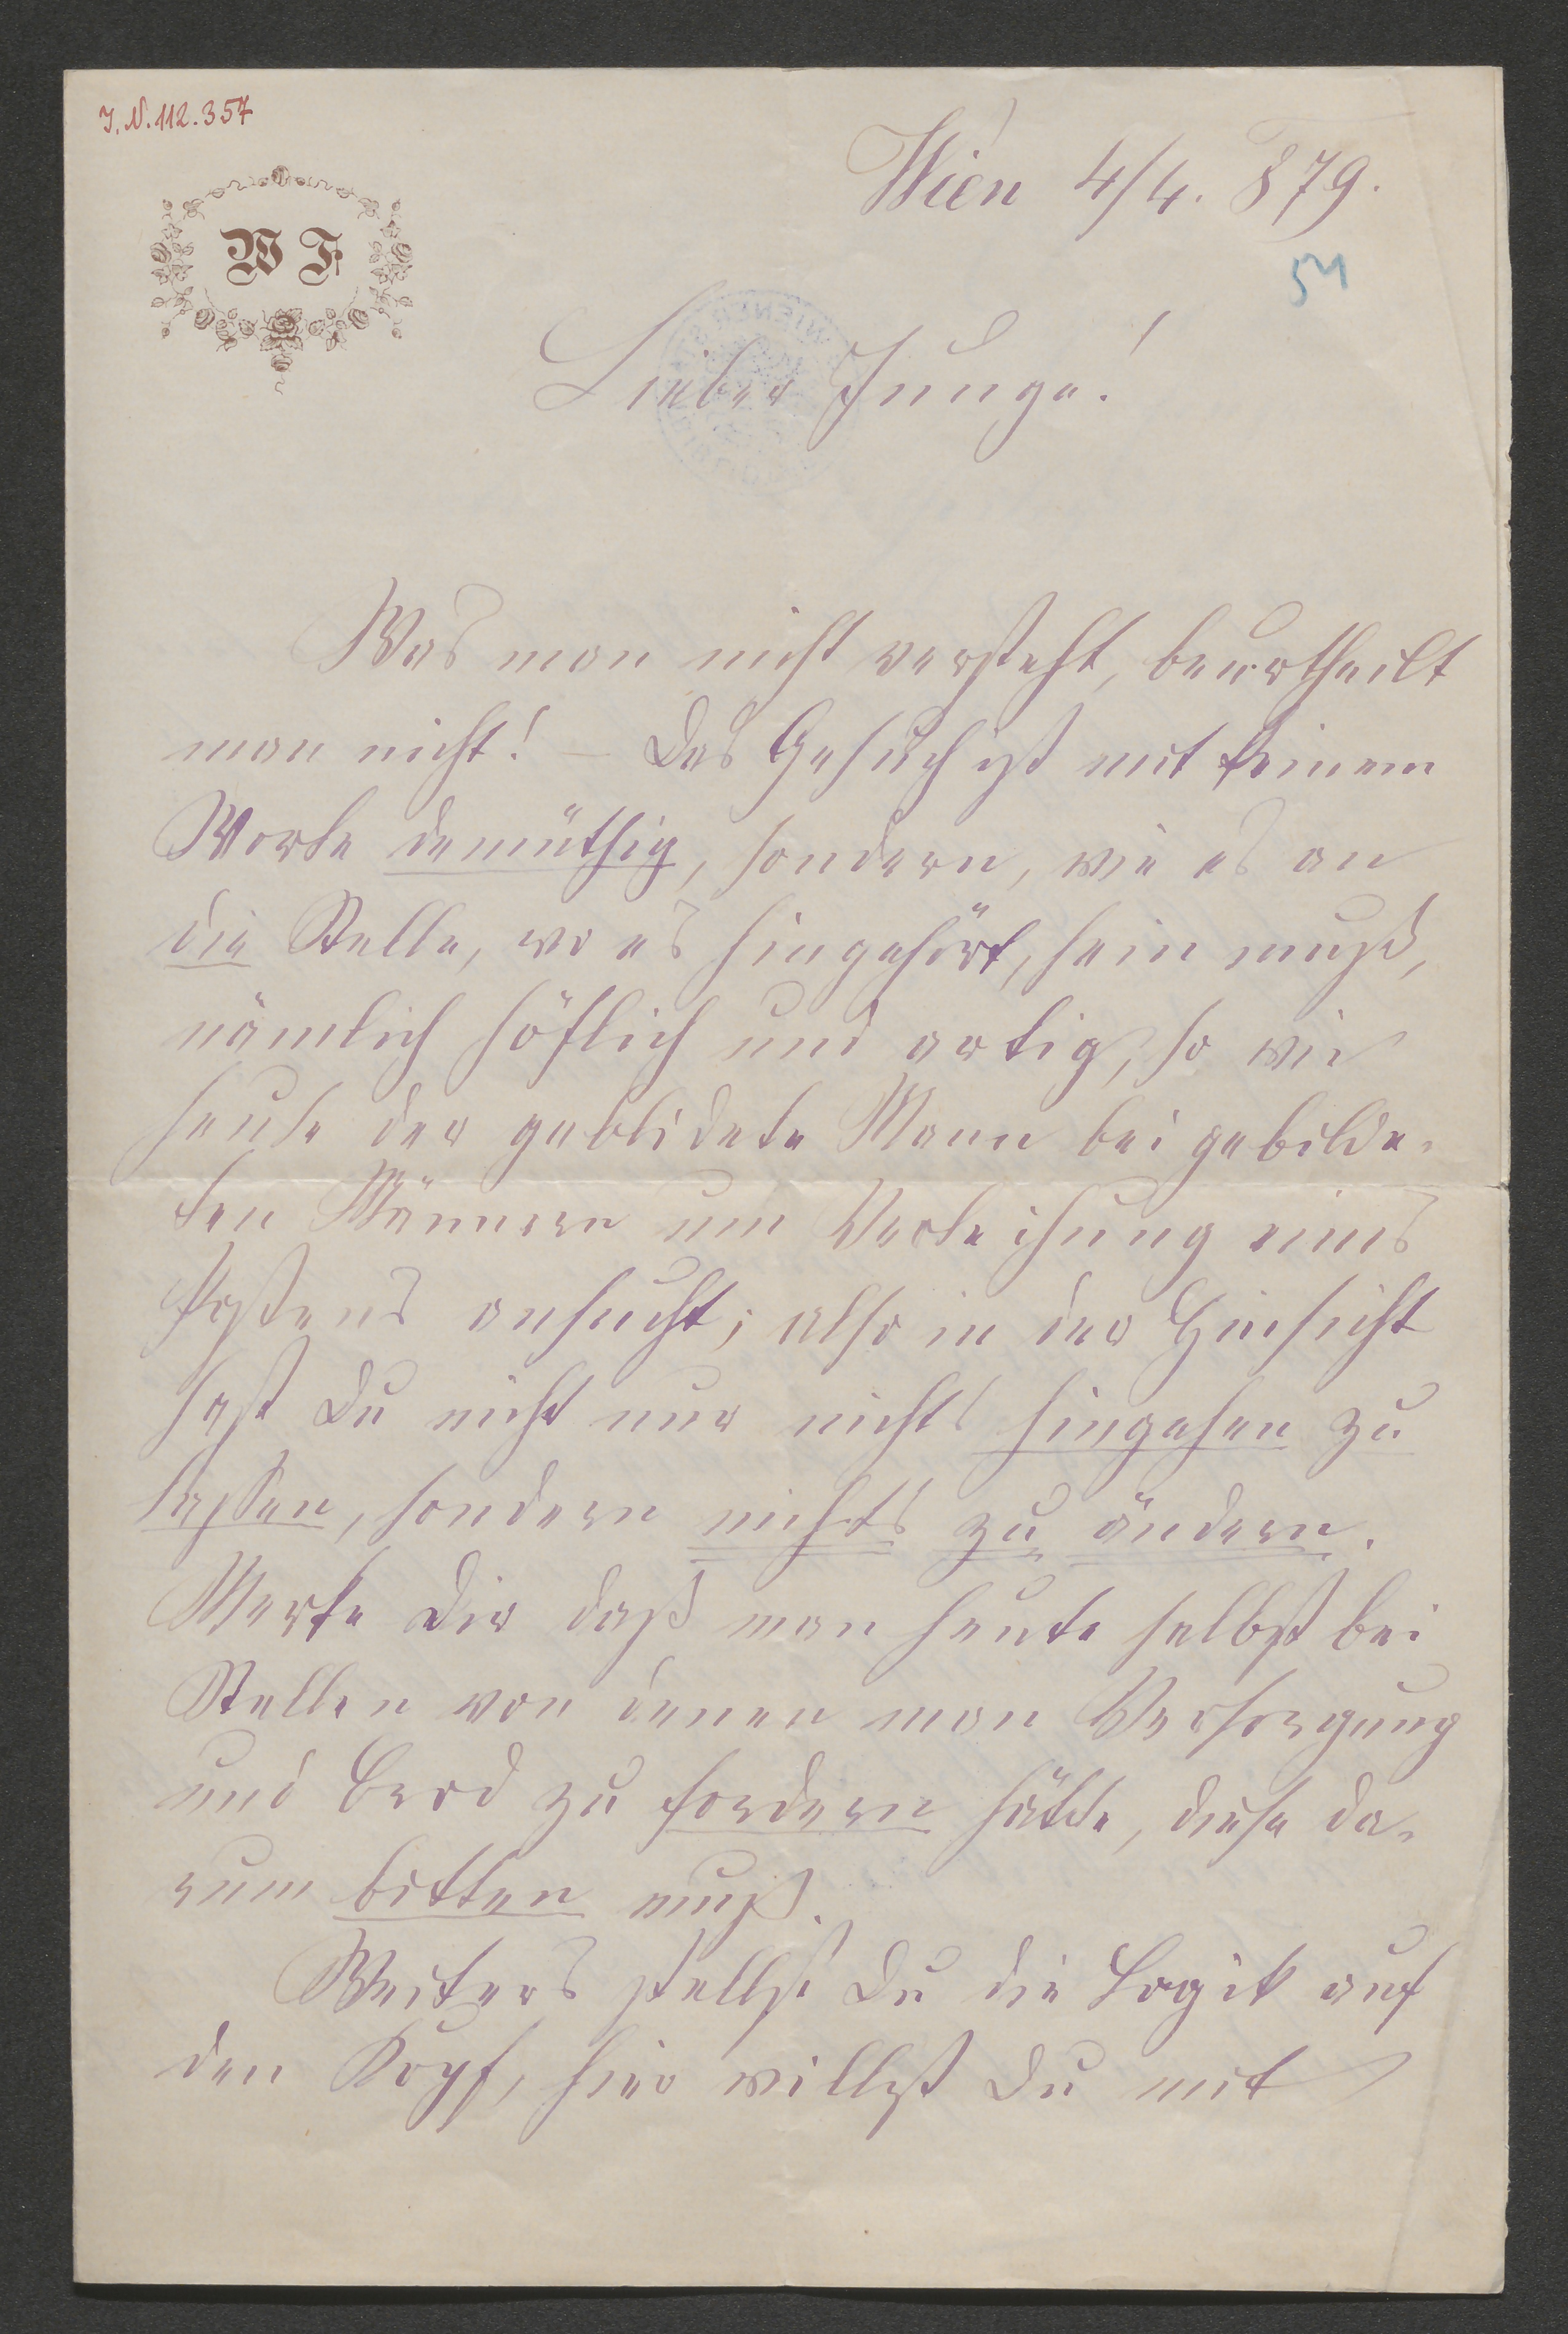 I. N. 112.357
Wien 4/4. 879.
W F
54
Lieber Junge!
Was man nicht versteht, beurtheilt
man nicht! – Das Gesuch ist mit keinem
Worte demüthig, sondern, wie es an
die Stelle, wo es hingehört, sein muß,
nämlich höflich und artig, so wie
heute der geblidete Mann bei gebilde-
ten Männern um Verleihung eines
Postens ansucht; also in der Hinsicht
hast Du nicht nur nichts hingehen zu
lassen, sondern nichts zu ändern.
Merke Dir daß man heute selbst bei
Stellen von denen man Versorgung
und Brod zu fordern hätte, diese da-
rum bitten muß.
Weiters stellst Du die Logik auf
den Kopf, hier willst Du mit